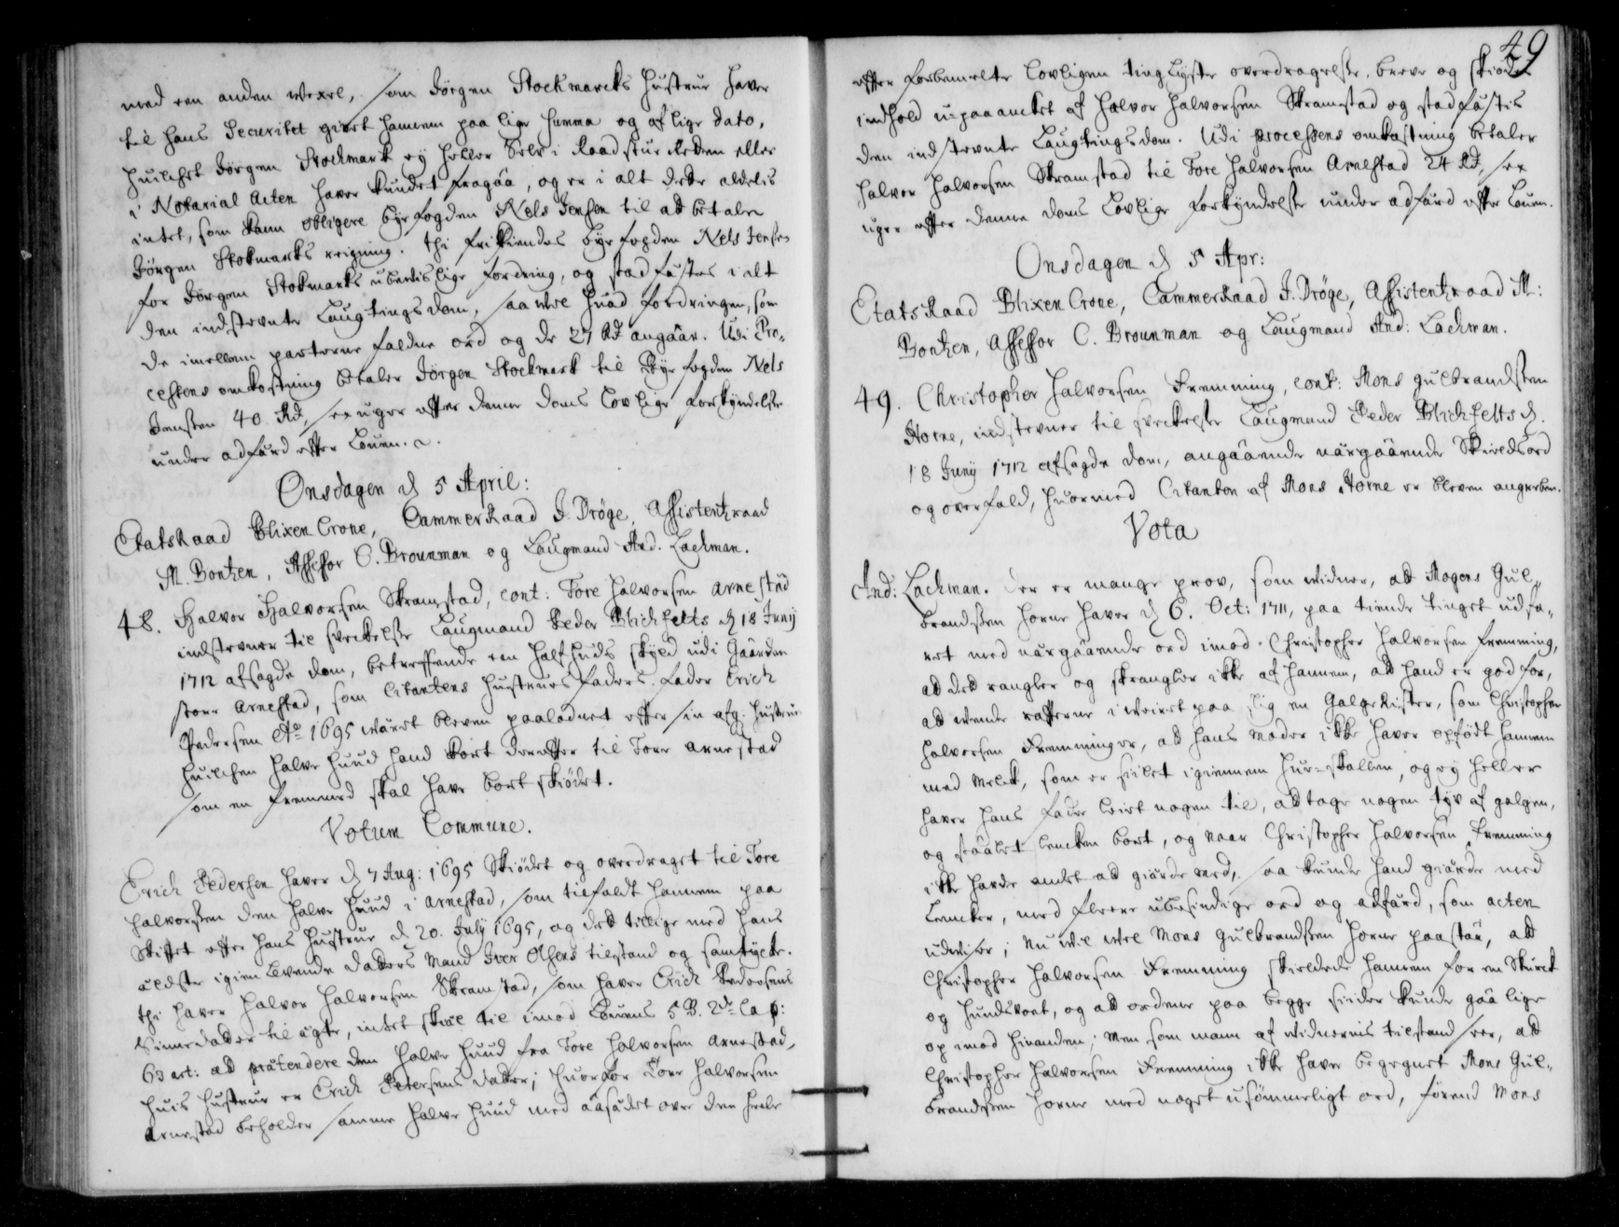 med een anden Wexel, som Jörgen Stockmarcks Hustrue haver
til hans Securitet givet hannem paa lige Summa og af lige dato,
huilchet Jörgen Stockmark ej heller Selv i Raadstue Retten eller
i Notarial Acten haver kundet fragaa, og er i alt dette aldelis
intet, som kann obligere byefogden Nels Jensen til at betale
Jörgen Stokmarks reigning. Thi frikiendes byefogden Nels Jensen
for Jörgen Stokmarks ubevislige fordring, og stadfæstes i alt
den indstevnte Laugtings dom, saa vel hvad fordringen, som
de imellem parterne faldne ord og de 27 Rd angaar. Udi Pro-
cessens omkostning betaler Jörgen Stockmark til Byefogden Nels
Jenssen 40. Rd, sex uger efter denne doms Lovlige forkyndelse
under adfærd efter Loven.
Onsdagen d 5 April:
EtatsRaad Blixen Crone, CammerRaad J. Dröge, Assistentzraad
M. Bontzen, Assessor C. Brounman og Laugmand And. Lachman.
48. Halvor Halvorsen Skramstad, cont: Tore Halvorsen Arnestad
indstevner til svekelse Laugmand Peder Blichfelts d 18 Juny
1712 afsagde dom, betreffende een half huds skyld udi Gaarden
store Arnestad, som Citantens hustrues faders fader Erich
Pedersen Ao 1695 været bleven paalodnet efter sin afg: hustrue
huilchen halve huud hand kort derefter til Tore Arnestad
som en fremmed skal have bort skiödet.
Votum Commune.
Erich Pedersen haver d 7 Aug: 1695 Skiödet og overdraget til Tore
Halvorssen den halve huud i Arnestad, som tilfaldt hannem paa
Skiftet efter hans hustrue d 20. July 1695, og det tillige med hans
ældste igien levende datters mand Iver Olsens tilstand og samtycke.
thi haver Halvor Halvorsen Skramstad, som haver Erich Pedersens
Sönnedatter til ægte, intet skiæl til imod Lovens 5 B. 2det Cap:
63 art: at prætendere den halve huud fra Tore Halvorsen Arnestad,
huis hustrue er Erich Petersens datter; huorfor Tore Halvorsen
Arnestad beholder samme halve huud med aasædet over den heele
49
efter forbemelte lovligen tinglyste overdragelse, breve og skiöde
indhold upaaancket af Halvor Halvorsen Skramstad og stadfæstes
den indstevnte Laugtings dom. Udi processens omkostning betaler
Halvor Halvorsen Skramstad til Tore Halvorsen Arnestad 24 Rd, sex
uger efter denne doms Lovlige forkyndelse under adfærd efter Loven.
Onsdagen d 5 Apr:
EtatsRaad Blixen Crone, CammerRaad J. Dröge, Assistentzraad M:
Bontzen, Assessor C. Brounman og Laugmand And: Lachman.
49. Christopher Halvorsen Fremming, cont: Mons Gulbrandssen
Horne, indstevner til svekelse Laugmand Peder Blichfelts d.
18 Juny 1712 afsagde dom, angaaende nærgaaende Skieldsord
og overfald, huormed Citanten af Mons Horne er bleven angreben.
Vota
And: Lachman. Der er mange prov, som vidner, at Mogens Gul-
brandssen Horne haver d 6. Oct: 1711, paa tiende tinget udfa-
ret med nærgaaende ord imod Christopher Halvorsen Fremming,
at det rangler og skrangler ikke af hannem, at hand er god for,
at vende rafterne i veiret paa sig en galgekister, som Christopher
Halvorsen Fremming er, at hans moder ikke haver opfödt hannem
med melck, som er siilet igiennem huer-skallen, og ej heller
haver hans fader leiet nogen til, at tage nogen tyv af galgen,
og staalet lencken bort, og naar Christopher Halvorsen Fremming
ikke havde andet at giærde med, saa kunde hand giærde med
Lencker, med fleere ubesindige ord og adfærd, som acten
udviser; Nu vil vel Mons Gulbrandssen Horne paastaa, at
Christopher Halvorsen Fremming skieldede hannem for en Skurck
og hundsvot, og at ordene paa begge siider kunde gaa lige
op imod hinanden; men som mann af vidnernis tilstand seer, at
Christopher Halvorsen Fremming ikke haver begegnet Mons Gul-
brandssen Horne med noget usömmeligt ord, förend Mons